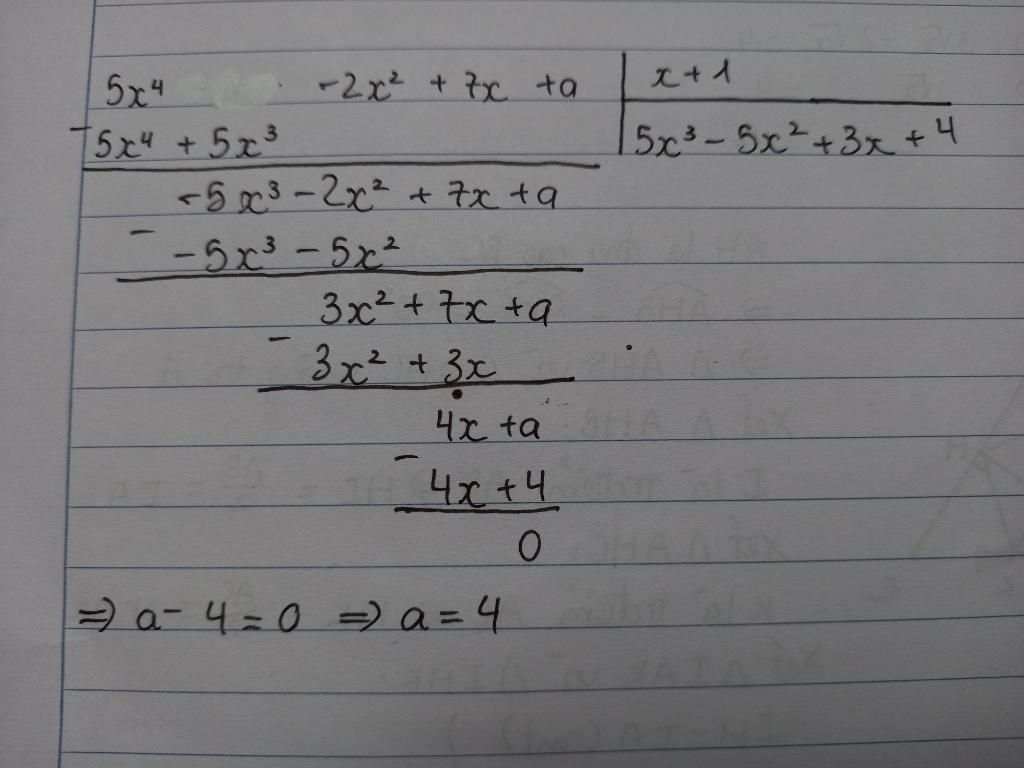 5x⁴ -2x² + 7x + a | x + 1
- 5x⁴ + 5x³ | 5x³ - 5x² + 3x + 4
-5x³ - 2x² + 7x + a
- -5x³ - 5x²
3x² + 7x + a
- 3x² + 3x
4x + a
- 4x + 4
0
⇒ a - 4 = 0 ⇒ a = 4